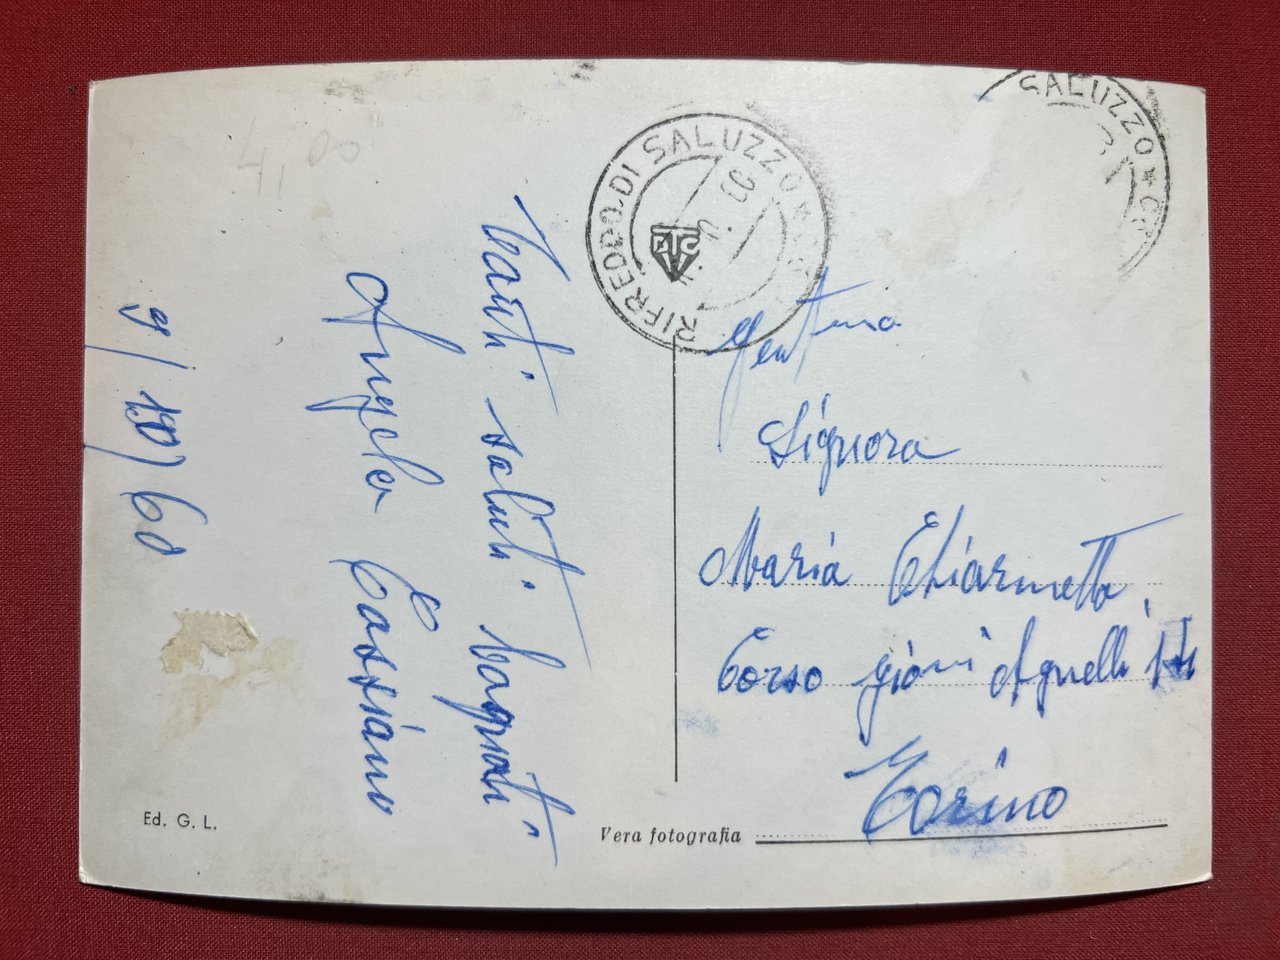 4,00
RIFREDDO DI SALUZZO
SALUZZO * C
9/10/60
Tanti saluti bagnati
Angela Cassiano
Gent.ma
Signora
Maria Chiarmetta,
Corso Giovni Agnelli
Torino
Ed. G. L.
Vera fotografia